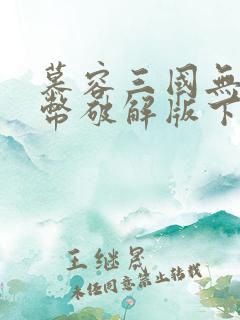 慕容三國無
幣破解版下
王继晟
未经同意禁止转载